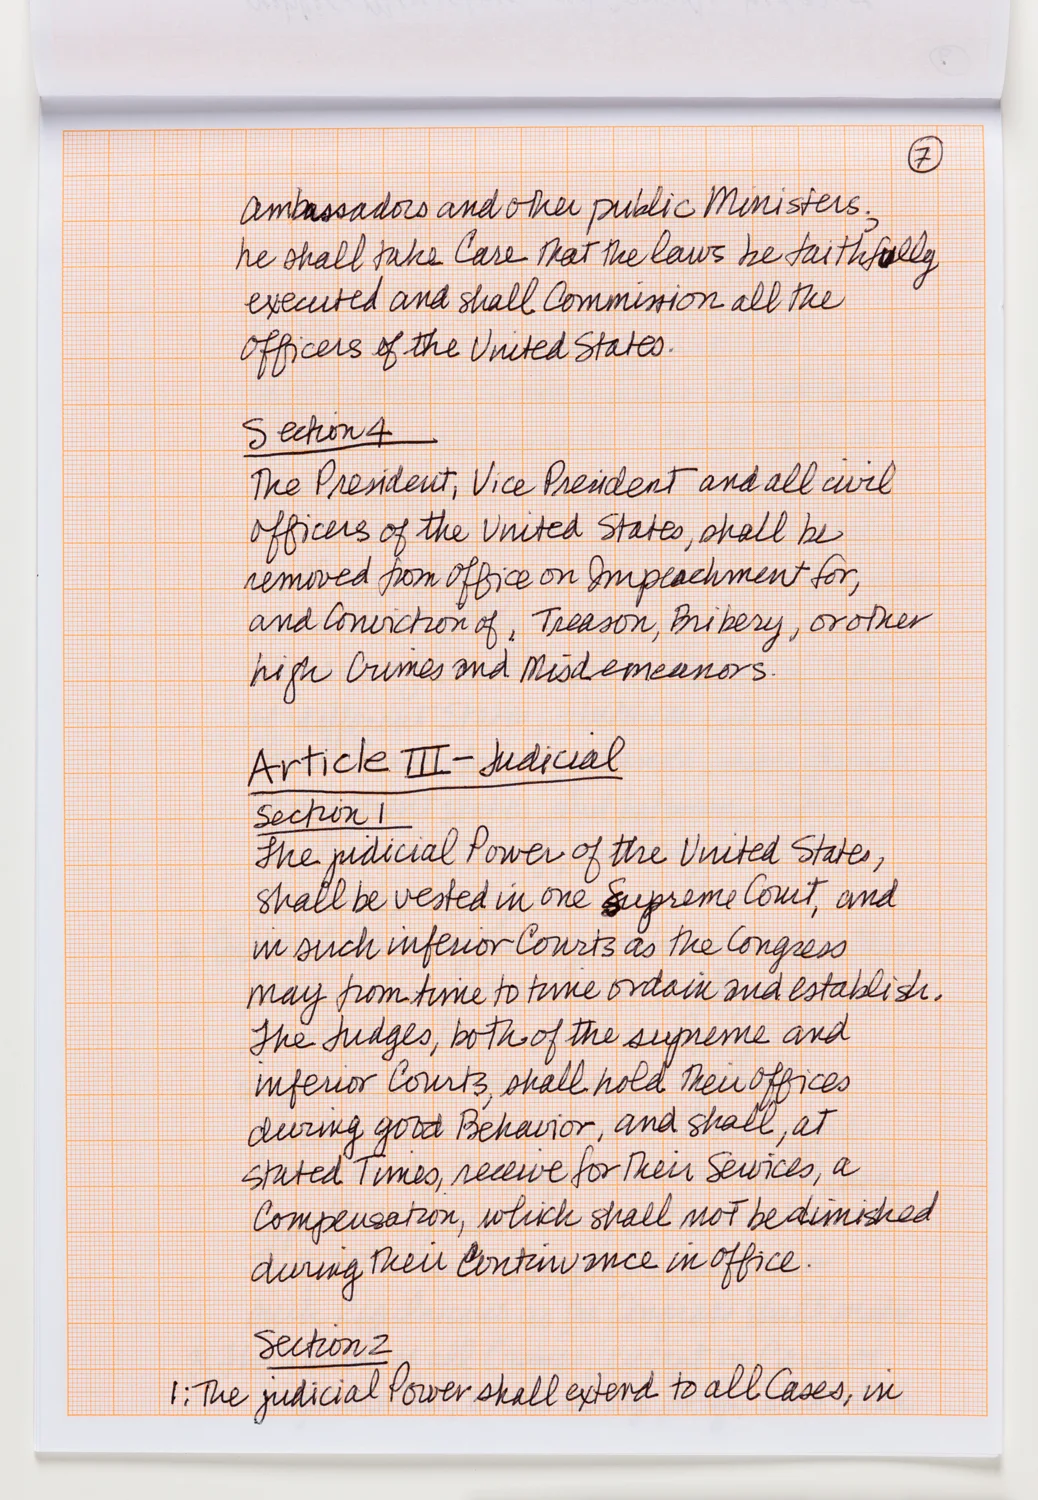 7
ambassadors and other public Ministers;
he shall take Care that the laws be faithfully
executed and shall Commission all the
officers of the United States.
Section 4
The President, Vice President and all civil
officers of the United States, shall be
removed from office on Impeachment for,
and Conviction of, Treason, Bribery, or other
high Crimes and Misdemeanors.
Article III - Judicial
Section 1
The judicial Power of the United States,
shall be vested in one Supreme Court, and
in such inferior Courts as the Congress
may from time to time ordain and establish.
The Judges, both of the supreme and
inferior Courts, shall hold their offices
during good Behavior, and shall, at
stated Times, receive for their Services, a
Compensation, which shall not be diminished
during their Continuance in office.
Section 2
1: The judicial Power shall extend to all Cases, in